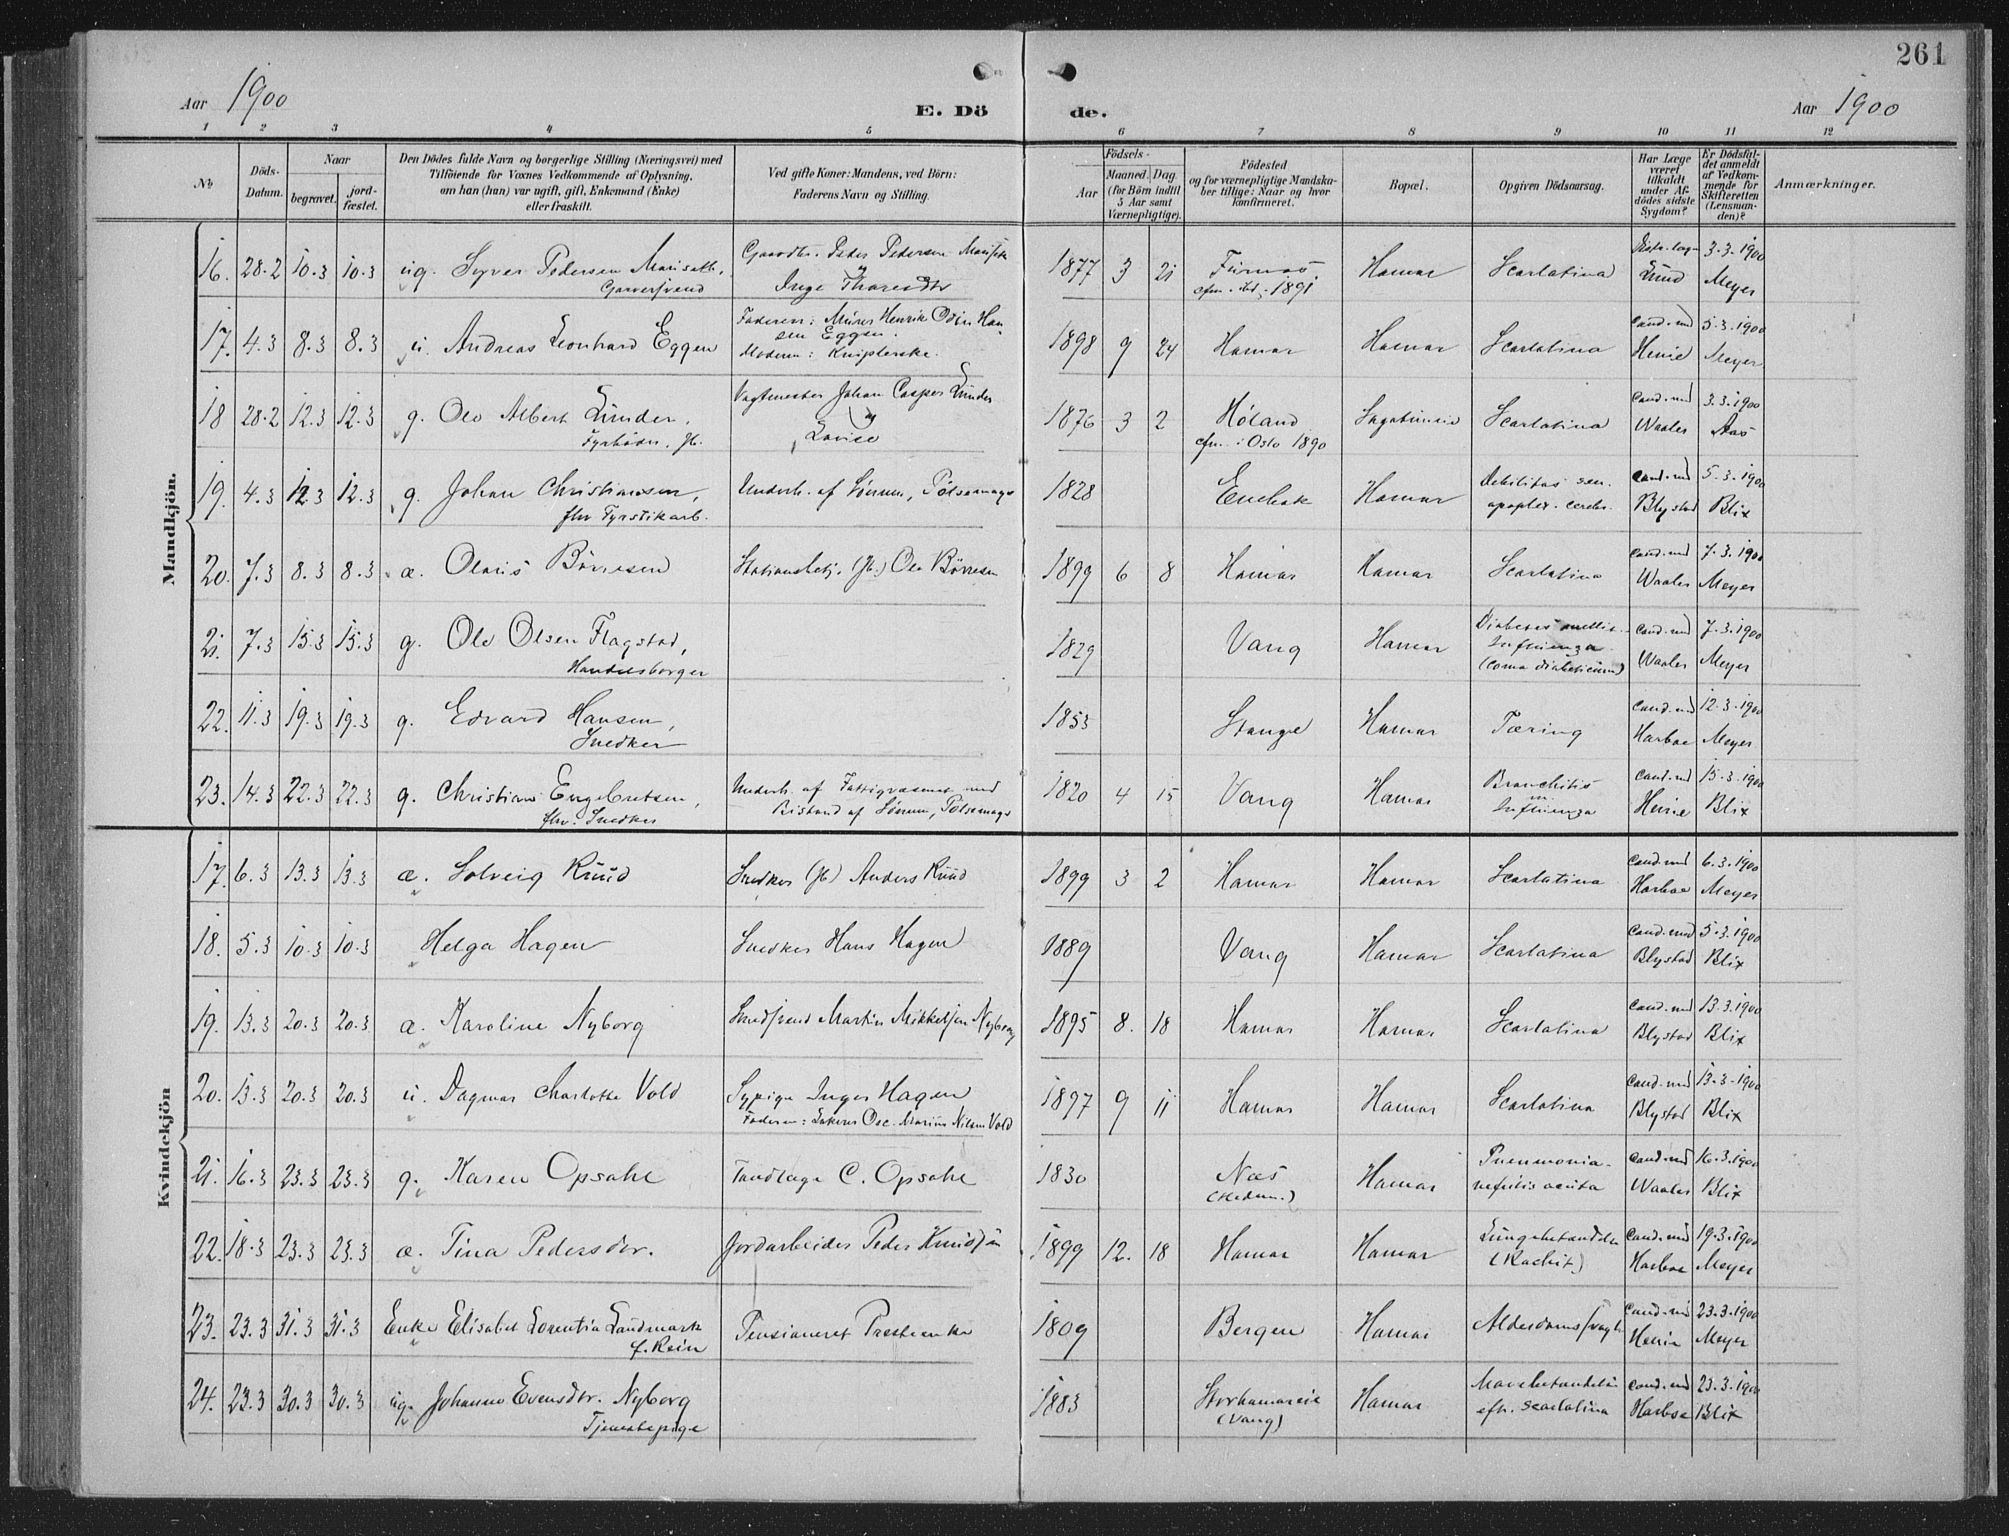 261
Aar 1900
E. Dö
de.
Aar 1900
1 2 3 4 5 6 7 8 9 10 11 12
No
Döds-Datum.
Naar
begravet.
jord-fæstet.
Den Dödes fulde Navn og borgerlige Stilling (Næringsvei) med
Tilföiende for Voxnes Vedkommende af Oplysning,
om han (hun) var ugift, gift, Enkemand (Enke)
eller fraskilt.
Ved gifte Koner: Mandens, ved Börn:
Faderens Navn og Stilling.
Födsels-
Aar
Maaned. Dag.
(for Börn indtil
5 Aar samt
Værnepligtige).
Födested
og for værnepligtige Mandska-
ber tillige: Naar og hvor
konfirmeret.
Bopæl.
Opgiven Dödsaarsag.
Har Læge
været
tilkaldt
under Af-
dödes sidste
Sygdom?
Er Dödsfal-
det anmeldt
af Vedkom-
mende for
Skifteretten
(Lensman-
den)?
Anmærkninger.
Mandkjön.
16. 28.2 10.3 10.3 ug. Syver Pedersen
Garversvend
1877 3 21 Furnæs, Hamar Scarlatina Lund 3.3.1900 Meyer
cfm. ibd. 1891
17. 4.3 8.3 8.3 u. Andreas Leonhard Eggen
Faderen: Murer Henrik Odin Han
sen Eggen.
Moderen: Kniplerske.
1898 9 24 Hamar Hamar Scarlatina Cand. med Heurie 5.3.1900 Meyer
18 28.2 12.3 12.3 g. Ole Albert Lunder,
Fyrböder, Jb.
Vagtmester Johan Casper Lunder
og
Lovise
1876 3 2 Høland Scarlatina Cand. med Waaler 3.3.1900 Aas
cfm. i Oslo 1890
19. 4.3 12.3 12.3 g. Johan Christiansen,
fhv Fyrstikarb.
Underh. af
1828 Enebak Hamar Debilitas sen. Cand. med Blystad 5.3.1900 Blix
apoplex. cerebr.
20. 7.3 8.3 8.3 æ. Olaris Börresen Stationsbetj. (Jb.) Ole Börresen
1899 6 8 Hamar Hamar Scarlatina Cand. med Waaler 7.3.1900 Meyer
21. 7.3 15.3 15.3 g. Ole Olsen Flagstad,
Handelsborger
1829 Vang Hamar Diabetes mellit. Cand. med Waaler 7.3.1900 Meyer
Influenza
(Coma diabeticum)
22. 11.3 19.3 19.3 g. Edvard Hansen,
Snedker
1853 Stange Hamar Tæring Cand. med Harboe 12.3.1900 Meyer
23. 14.3 22.3 22.3 g. Christian Engebretsen,
fhv. Snedker
Underh. af Fattigvæsenet med
Bistand af
1820 4 15 Vang Hamar Bronchitis Cand. med Heurie 15.3.1900 Blix
Influenza
Kvindekjön
17. 6.3 13.3 13.3 æ. Solveig Ruud Snedker (Jb) Anders Ruud
1899 3 2 Hamar Hamar Scarlatina Cand. med Harboe 6.3.1900 Meyer
18. 5.3 10.3 10.3 Helga Hagen Snedker Hans Hagen
1889 Vang Hamar Scarlatina Cand. med Blystad 5.3.1900 Blix
19. 13.3 20.3 20.3 æ. Karoline Nyborg Martin Mikkelsen Nyborg
1895 8. 18 Hamar Hamar Scarlatina Cand. med Blystad 13.3.1900 Blix
20. 13.3 20.3 20.3 u. Dagmar Charlotte Vold Sypige Inger Hagen
Faderen: Marius Nilsen Vold
1897 9 11 Hamar Hamar Scarlatina Cand. med Blystad 13.3.1900 Blix
21. 16.3 23.3 23.3 g. Karen Opsahl Tandlæge C. Opsahl
1830 Næs Hamar Pneumonia Cand. med Waaler 16.3.1900 Blix
(Hedem.) nefritis acuta
22. 18.3 23.3 23.3 æ. Tina Pedersdtr. Jordarbeider Peder Knudsen
1899 12. 18 Hamar Hamar Lungebetændelse Cand. med Harboe 19.3.1900 Meyer
(Rachit.)
23. 23.3 31.3 31.3 Enke Elisabet Lorentia Landmark
f. Rein
Pensioneret Presteenke
1809 Bergen Hamar Alderdomssvagh. Cand. med Heurie 23.3.1900 Meyer
24. 23.3 30.3 30.3 ug. Johanne Evensdtr. Nyborg
Tjenestepige
1883 Storhamareie Hamar Cand. med Harboe 23.3.1900 Blix
(Vang) eft. scarlatina